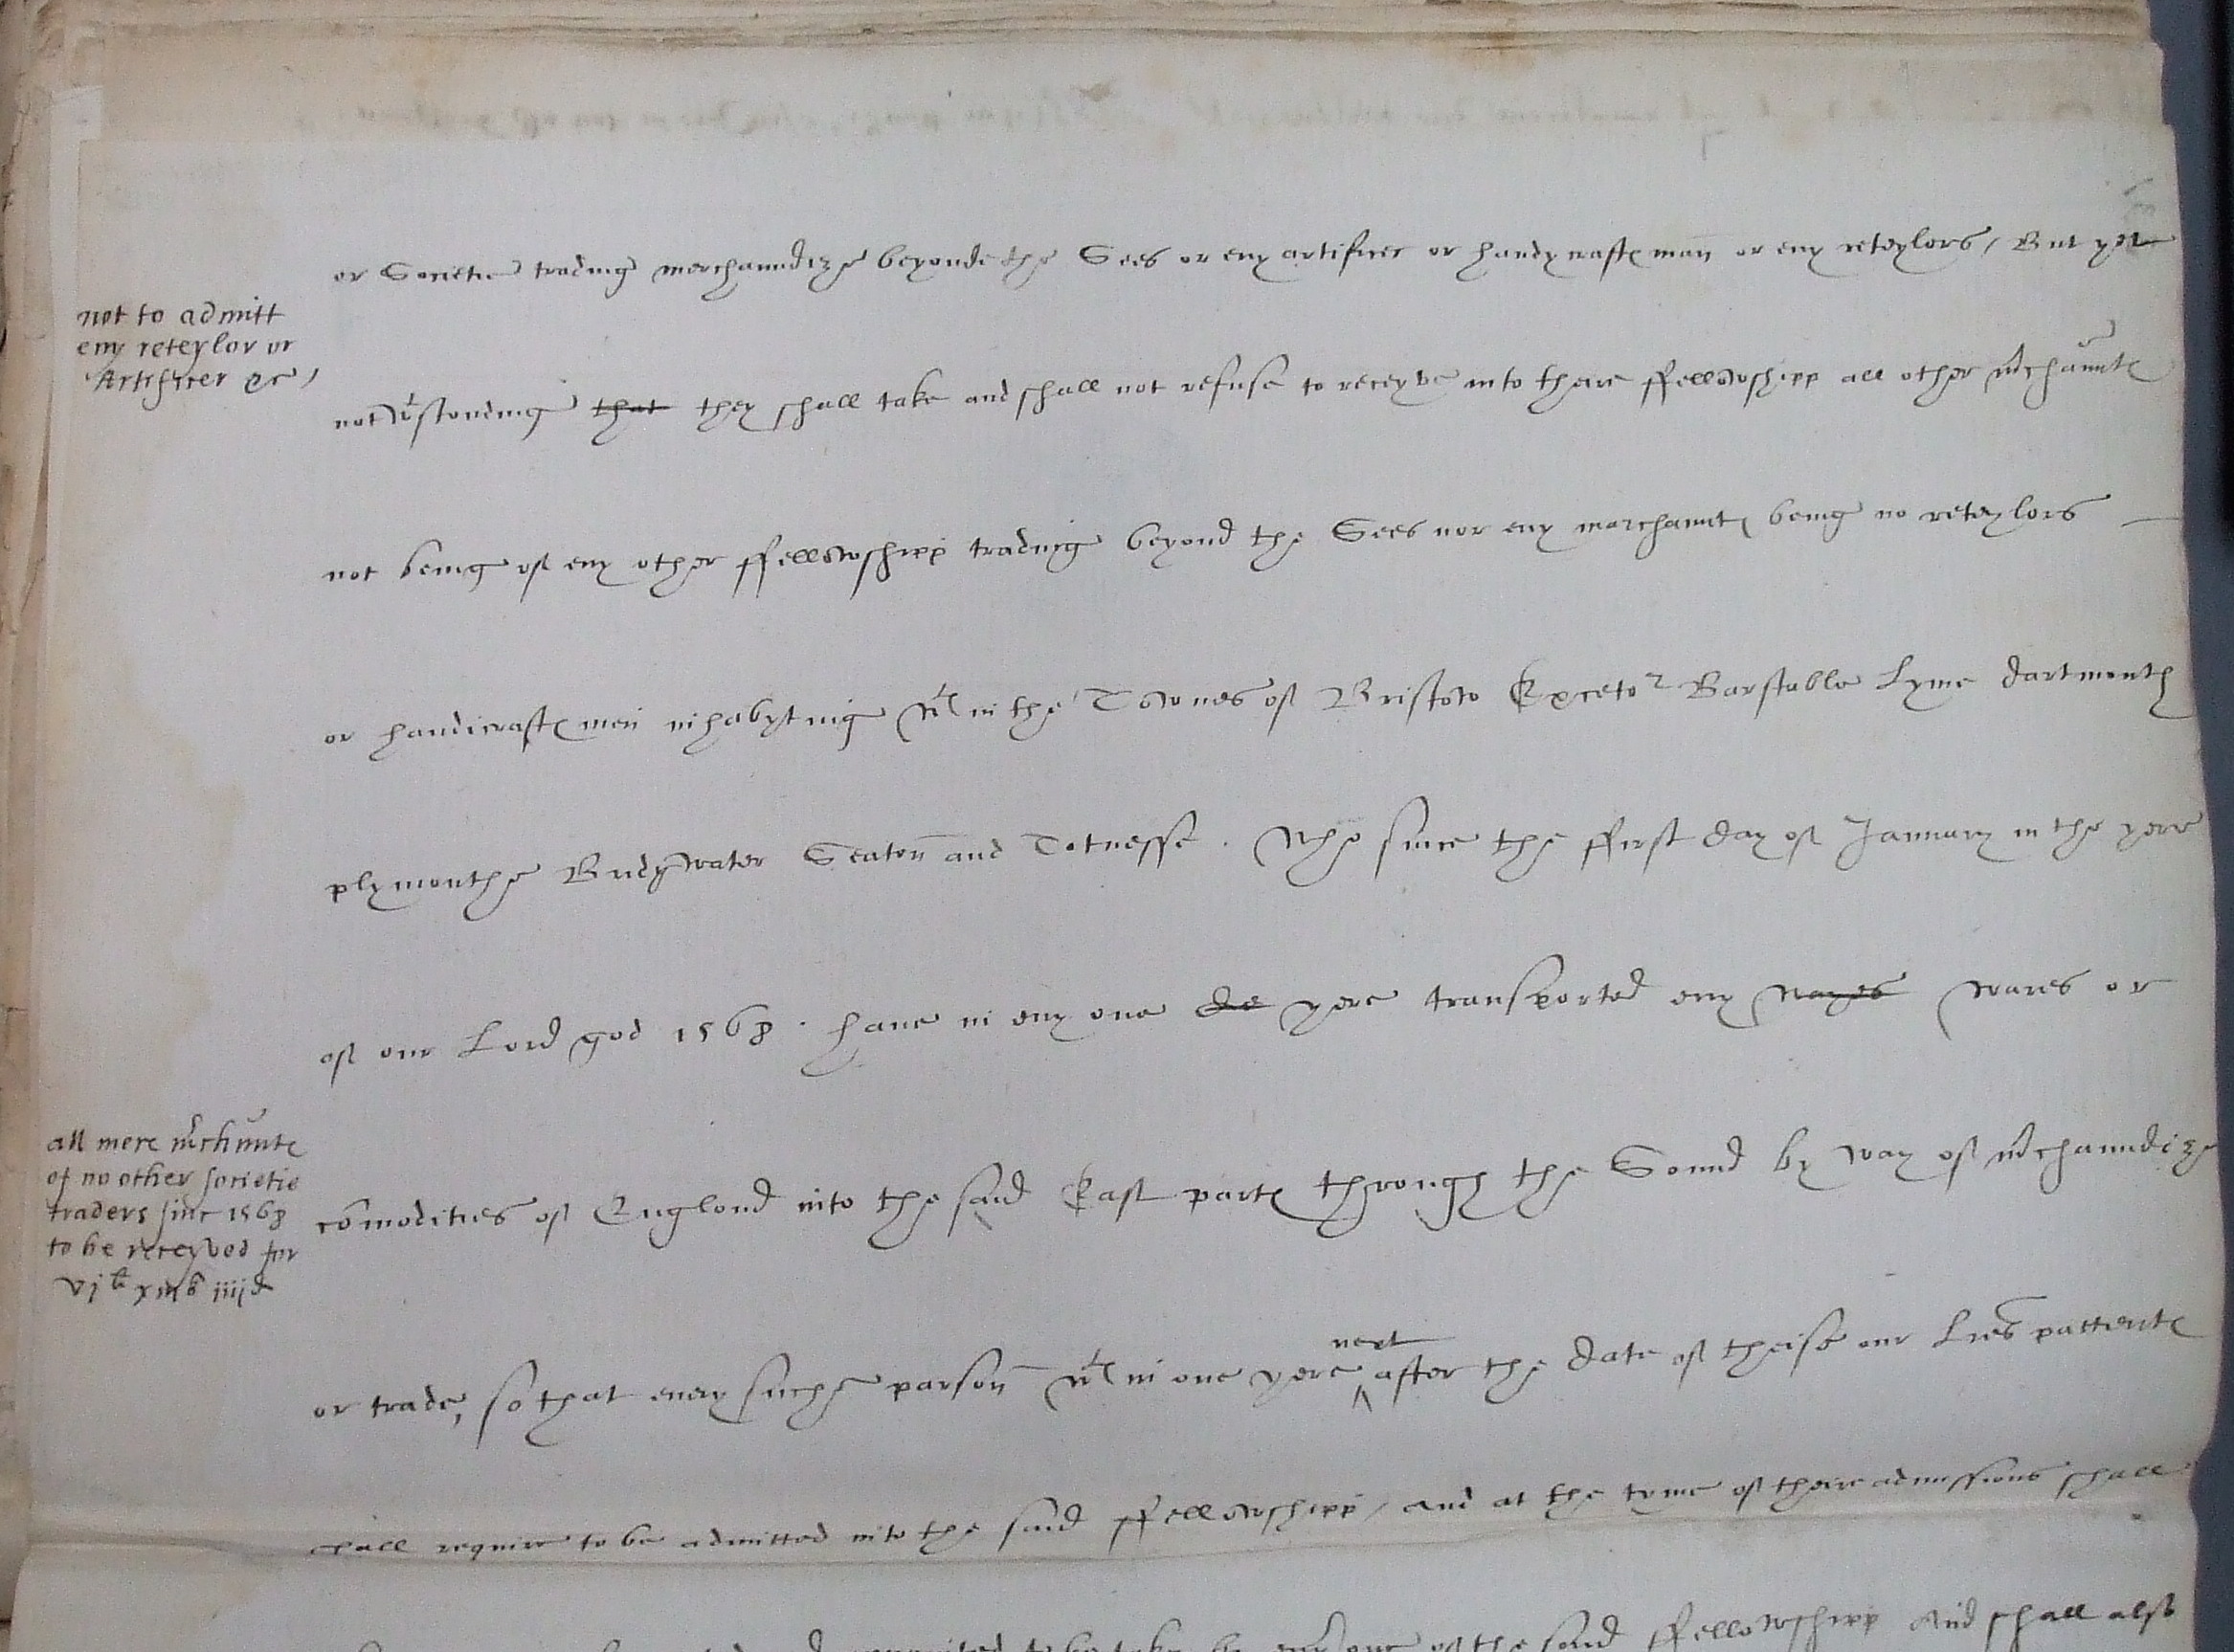 or Societie trading merchaundize beyonde the Sees or eny artificer or handycraftes man or eny reteylors / But yet
not to admitt
eny reteylor or
Artificer &c /
notwtstonding that they shall take and shall not refuse to receyve into theire ffellowshipp all other mrchauntes
not being of eny other ffellowshipp trading beyond the Sees nor eny marchauntes being no reteylors
or handicraftes men inhabyting wtin the Townes of Bristow Excetor Barstable Lyme dartmouth
plymouthe Bridgwater Seaton and Totnesse . Who since the ffirst day of January in the yere
of our Lord god 1568 . have in eny one de yere transported eny wayes wares or
all mere mrchuntes
of no other societie
traders sinc 1568
to be receyved for
vjli xiijs iiijd
comodities of Englond into the said East partes through the Sound by way of mrchaundize
or trade, so that every suche parson wtin one yere next after the date of theise our Lres pattentes
shall require to be admitted into the said ffellowshipp / and at the tyme of theire admissions shall
to be take by every one of the said ffellowshipp And shall also